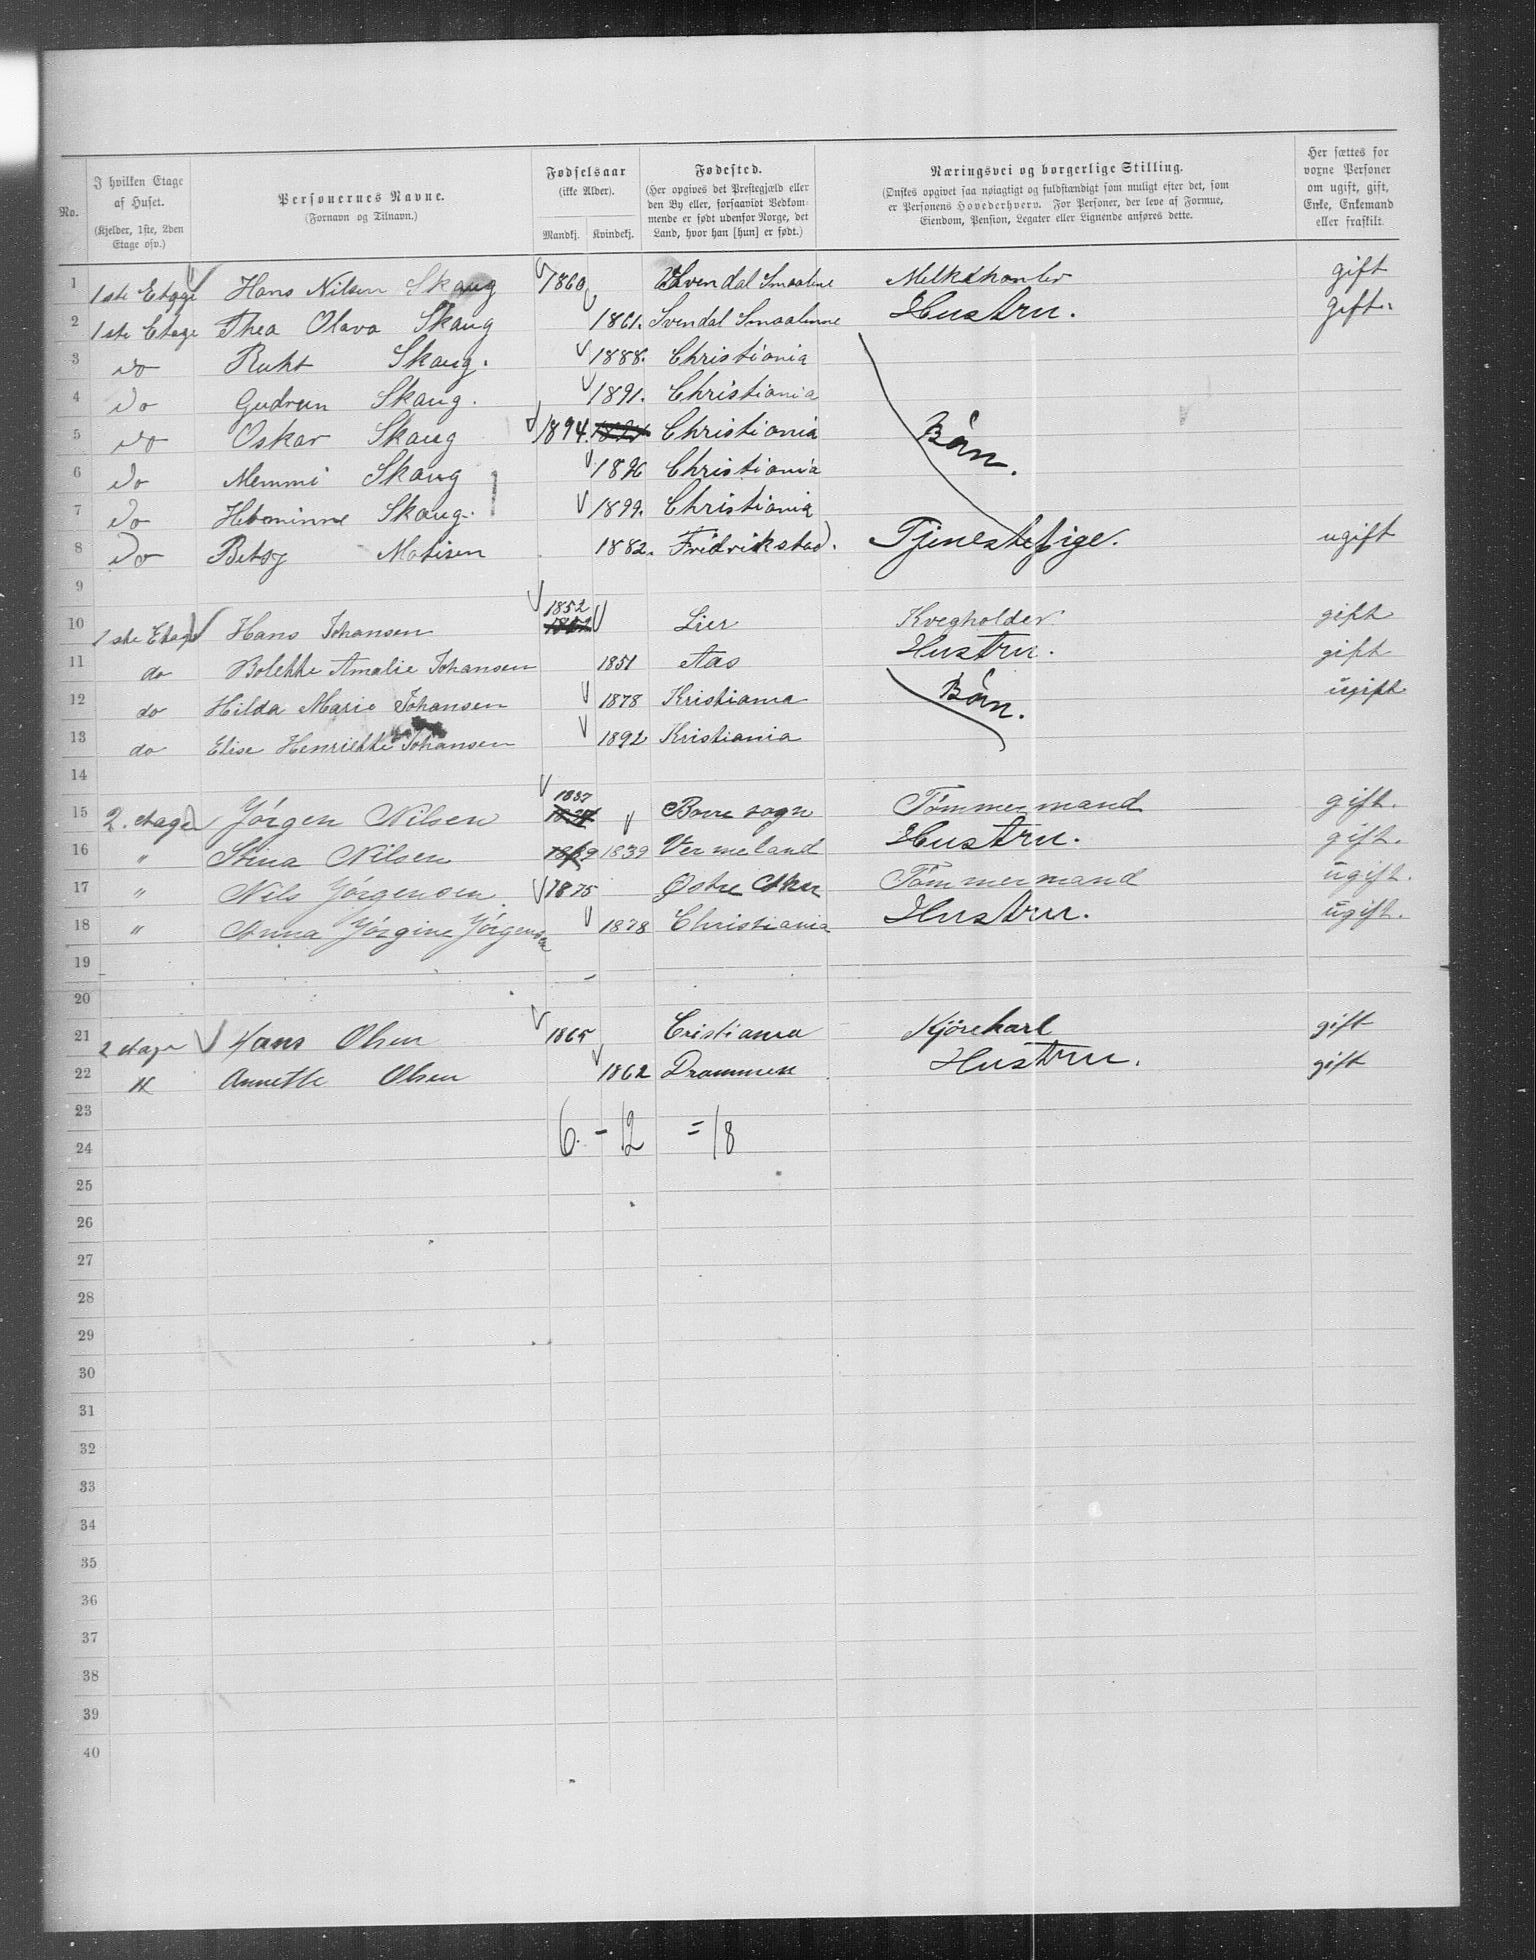 No. | I hvilken Etage af Huset. (Kjelder, 1ste, 2den Etage osv.) | Personernes Navne. (Fornavn og Tilnavn.) | Fødselsaar (ikke Alder). Mandkj. Kvindekj. | Fødested. (Her opgives det Prestegjæld eller den By eller, forsaavidt Vedkommende er født udenfor Norge, det Land, hvor han [hun] er født.) | Næringsvei og borgerlige Stilling. (Ønskes opgivet saa nøiagtigt og fuldstændigt som muligt efter det, som er Personens Hovederhverv. For Personer, der leve af Formue, Eiendom, Pension, Legater eller Lignende anføres dette.) | Her sættes for voxne Personer om ugift, gift, Enke, Enkemand eller fraskilt.
1 1ste Etage Hans Nilsen Skaug 1860 Svendal Smaalene Melkehandler gift
2 1ste Etage Thea Olava Skaug 1861. Svendal Smaalenne Hustru. gift.
3 do Ruht Skaug. 1888. Christiania
4 do Gudrun Skaug. 1891. Christiania
5 do Oskar Skaug 1894. Christiania Börn.
6 do Memmi Skaug 1896 Christiania
7 do Skaug. 1899. Christiania
8 do Betsy Matisen 1882. Fridrikstad. Tjenestepige. ugift
9
10 1ste Etage Hans Johansen 1852 Lier Kvegholder gift
11 do Bolette Amalie Johansen 1851 Aas Hustru. gift
12 do Hilda Marie Johansen 1878 Kristiania Börn. ugift
13 do Elise Henriette Johansen 1892 Kristiania
14
15 2. etage Jörgen Nilsen 1837 Borre sogn Tömmermand gift.
16 " Stina Nilsen 1839 1839 Vermeland Hustru. gift.
17 " Nils Jörgensen 1875 Østre Aker Tömmermand ugift.
18 " Anna Jörgine Jörgensen 1878 Christiania Hustru. ugift.
19
20
21 2 etage Hans Olsen 1865 Cristiania Kjörekarl gift
22 " Annette Olsen 1862 Drammen Hustru. gift
23
6. - 12 = 18
24
25
26
27
28
29
30
31
32
33
34
35
36
37
38
39
40